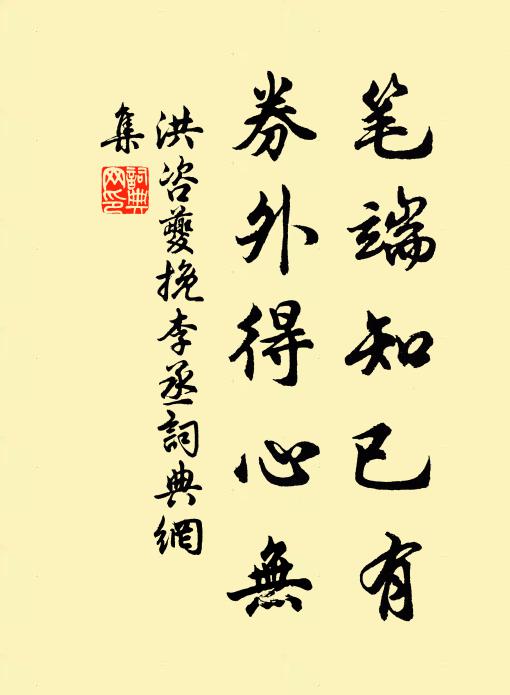 笔端知已有
券外得心無
洪咨夔挽李丞詞典網
集
詞典
网印